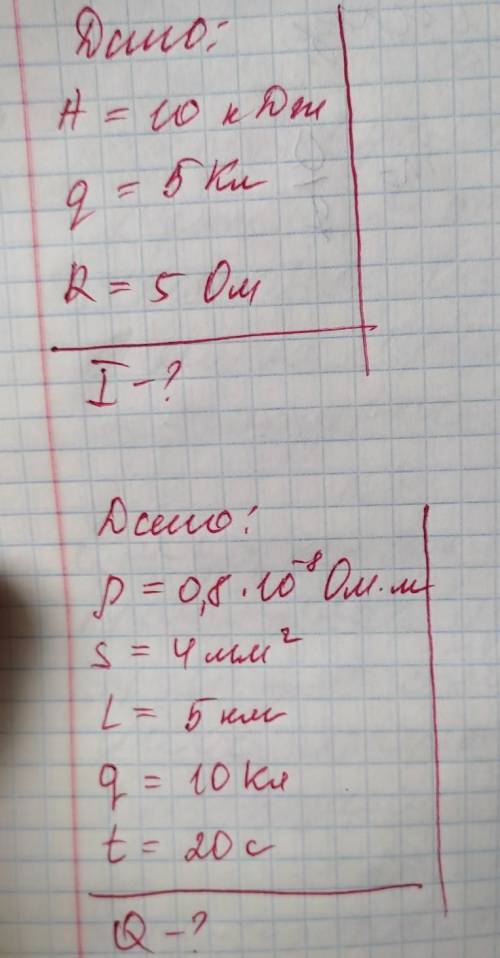 Дано:
A = 10 кДж
q = 5 Кл
R = 5 Ом
I - ?
Дано:
ρ = 0,8 · 10⁻⁸ Ом · м
S = 4 мм²
L = 5 км
q = 10 Кл
t = 20 с
Q - ?